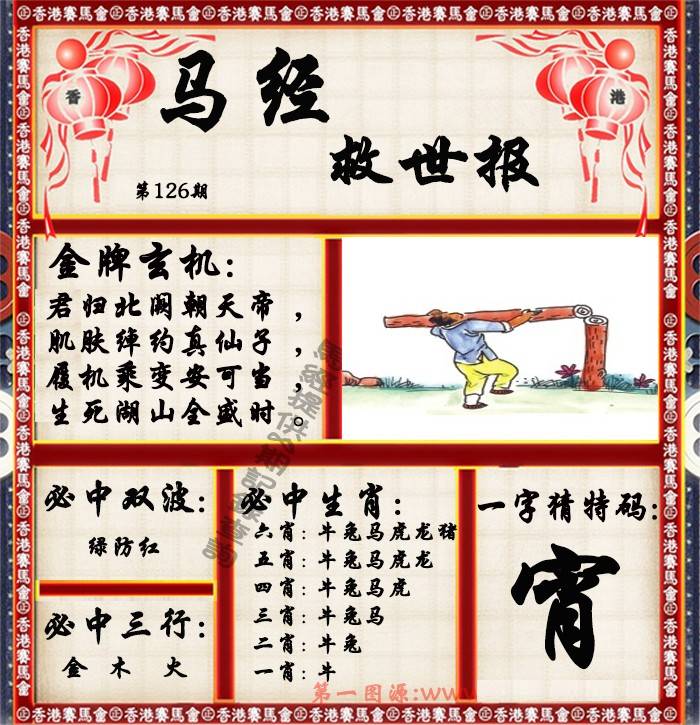 香港賽馬會
香 港
马经
救世报
第126期
金牌玄机:
君归北阙朝天帝，
肌肤绰约真仙子，
履机乘变安可当，
生死湖山全盛时。
必中双波:
绿防红
必中三行:
金 木 火
必中生肖:
六肖: 牛兔马虎龙猪
五肖: 牛兔马虎龙
四肖: 牛兔马虎
三肖: 牛兔马
二肖: 牛兔
一肖: 牛
一字猜特码:
宵
第一图源:www